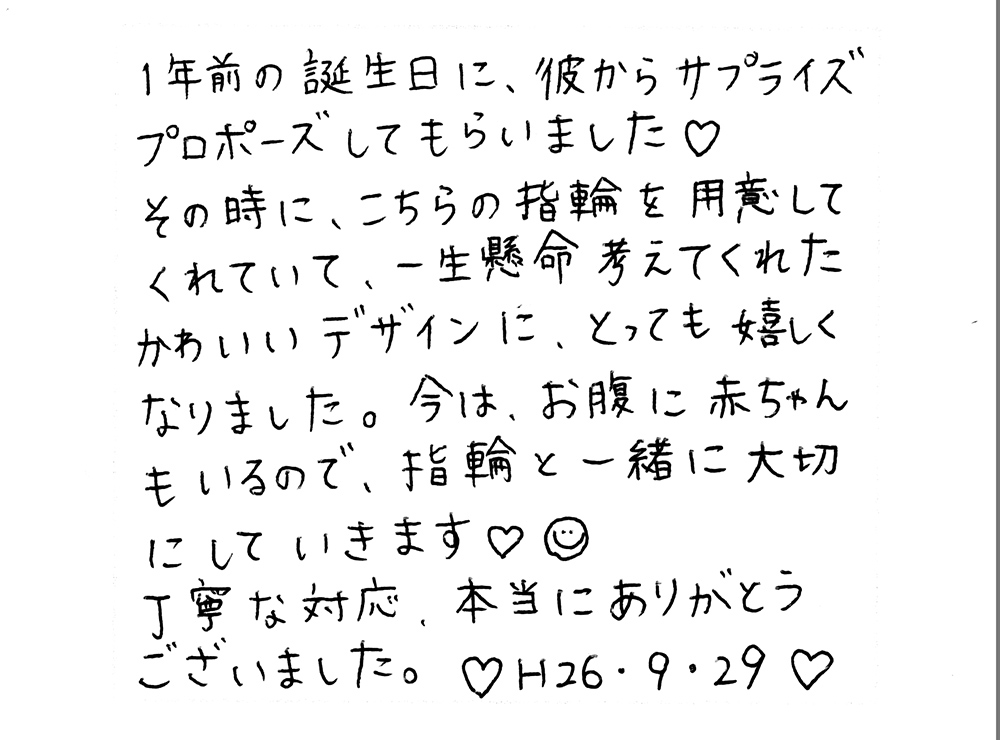 1年前の誕生日に、彼からサプライズ
プロポーズしてもらいました♡
その時に、こちらの指輪を用意して
くれていて、一生懸命考えてくれた
かわいいデザインに、とっても嬉しく
なりました。今は、お腹に赤ちゃん
もいるので、指輪と一緒に大切
にしていきます♡☺
丁寧な対応、本当にありがとう
ございました。♡H26・9・29♡